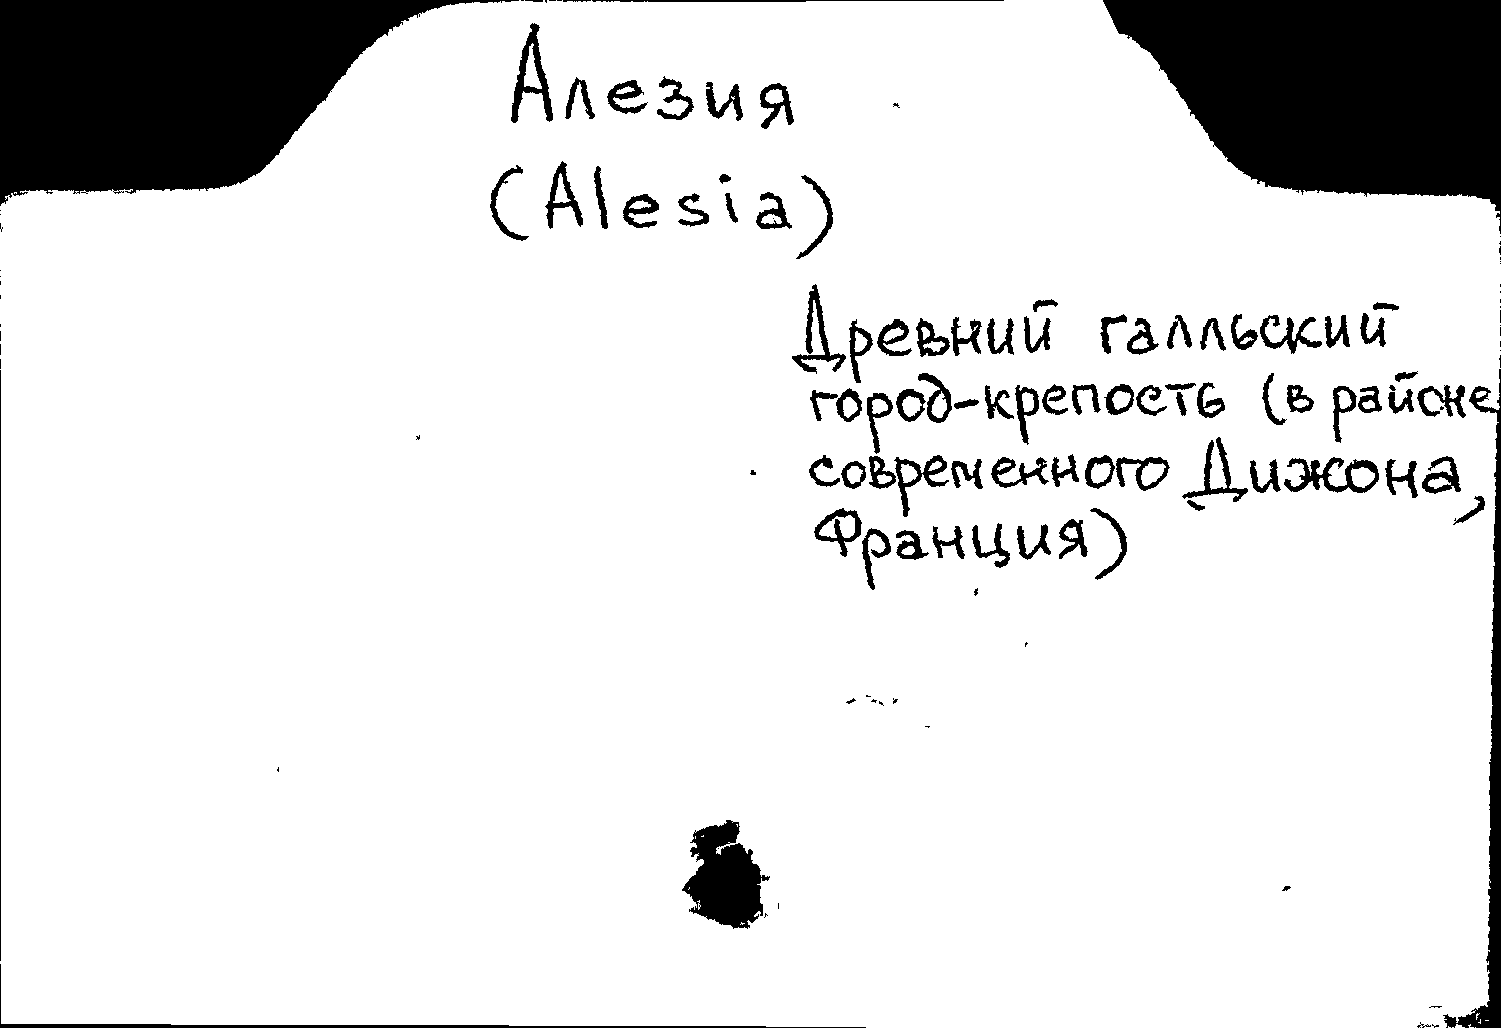 Алезия
(Alesia)
Древний галльский
город-крепость (в районе
современного Дижона,
Франция)